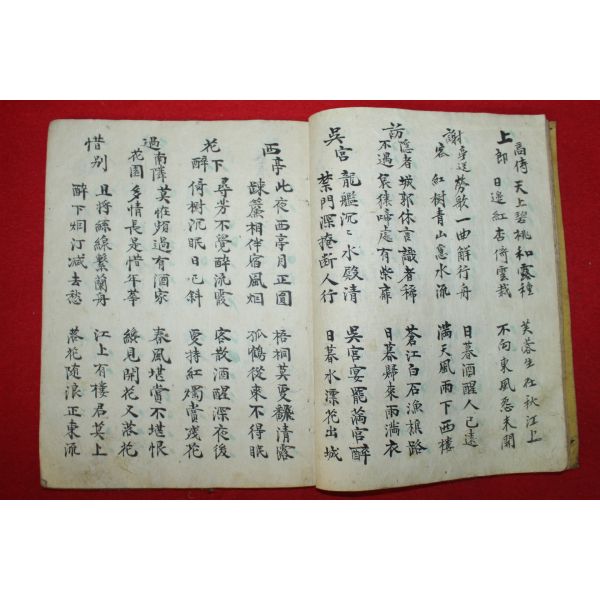 上高侍郎 天上碧桃和露種 芙蓉生在秋江上
日邊紅杏倚雲栽 不向東風怨未開
謝亭送客 勞歌一曲解行舟 日暮酒醒人已遠
紅樹青山急水流 滿天風雨下西樓
訪隱者不遇 城郭休言識者稀 蒼江白石漁樵路
哀猿啼處有柴扉 日暮歸來雨滿衣
吳宮 龍艦沉〻水殿清 吳宮宴罷滿宮醉
禁門深掩斷人行 日暮水漂花出城
西亭 此夜西亭月正圓 梧桐莫更翻清露
疎簾相伴宿風烟 孤鶴從來不得眠
花下醉 尋芳不覺醉流霞 客散酒醒深夜後
倚樹沉眠日已斜 更持紅燭賞殘花
過南隣花園 莫恠頻過有酒家 春風堪賞不堪恨
多情長是惜年華 纔見開花又落花
惜别 且將絲線繫蘭舟 江上有樓君莫上
醉下烟汀減去愁 落花隨浪正東流